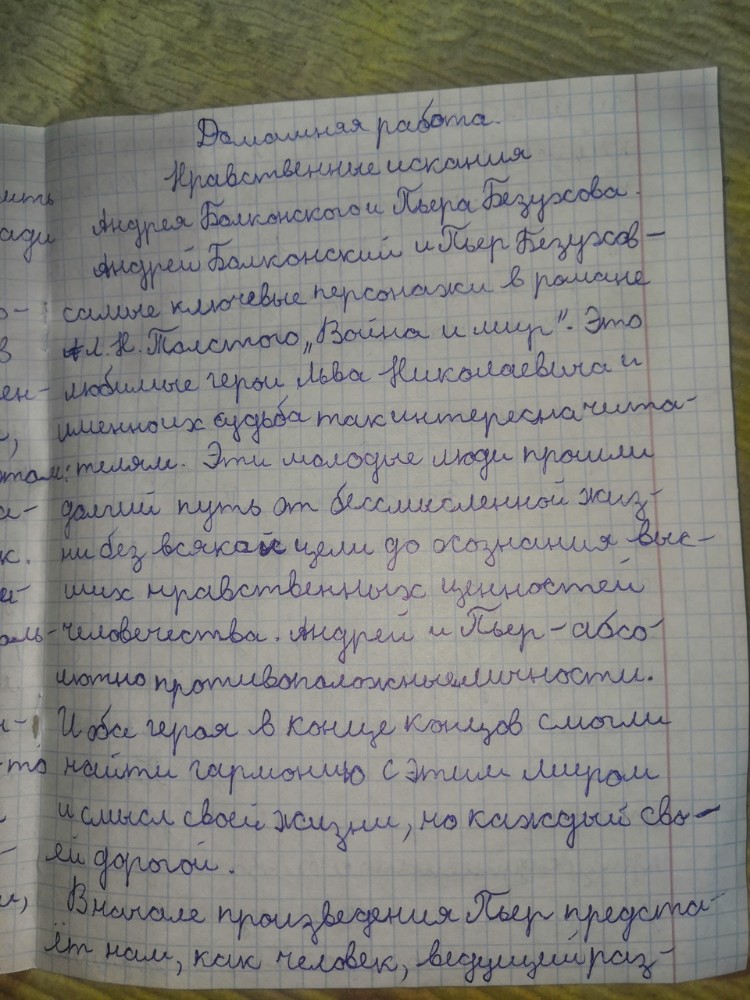 Домашняя работа.
Нравственные искания
Андрея Болконского и Пьера Безухова.
Андрей Болконский и Пьер Безухов -
самые ключевые персонажи в романе
Л. Н. Толстого „Война и мир". Это
любимые герои Льва Николаевича и
именно их судьба так интересна чита-
телям. Эти молодые люди прошли
долгий путь от бессмысленной жиз-
ни без всякой цели до осознания выс-
ших нравственных ценностей
человечества. Андрей и Пьер - абсо-
лютно противоположные личности.
И обе героя в конце концов смогли
найти гармонию с этим миром
и смысл своей жизни, но каждый сво-
ей дорогой.
Вначале произведения Пьер предста-
ёт нам, как человек, ведущий раз-